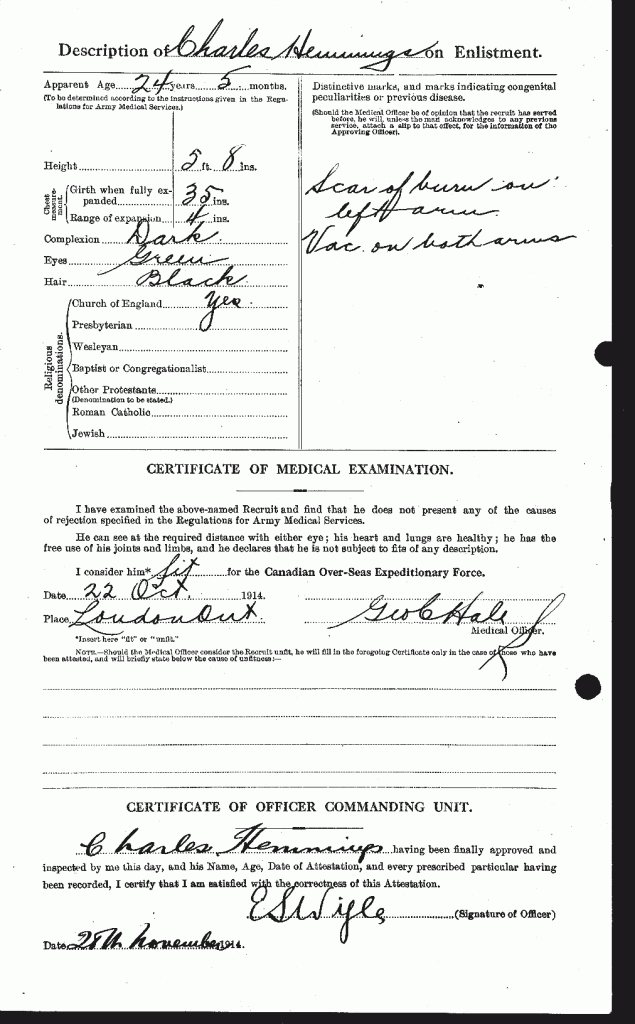 Description of Charles Hemmings on Enlistment.
Apparent Age 24 years 5 months.
(To be determined according to the instructions given in the Regu-
lations for Army Medical Services.)
Height 5 ft. 8 ins.
Chest measure-
ment.
Girth when fully ex-
panded 35 ins.
Range of expansion 4 ins.
Complexion Dark.
Eyes Green
Hair Black
Religious
denominations.
Church of England Yes.
Presbyterian
Wesleyan
Baptist or Congregationalist
Other Protestants
(Denomination to be stated.)
Roman Catholic
Jewish
Distinctive marks, and marks indicating congenital
peculiarities or previous disease.
(Should the Medical Officer be of opinion that the recruit has served
before, he will, unless the man acknowledges to any previous
service, attach a slip to that effect, for the information of the
Approving Officer).
Scar of burn on
left arm
Vac. on both arms
CERTIFICATE OF MEDICAL EXAMINATION.
I have examined the above-named Recruit and find that he does not present any of the causes
of rejection specified in the Regulations for Army Medical Services.
He can see at the required distance with either eye; his heart and lungs are healthy; he has the
free use of his joints and limbs, and he declares that he is not subject to fits of any description.
I consider him* fit for the Canadian Over-Seas Expeditionary Force.
Date 22 Oct. 1914.
Place London Ont. Geo C Hale
Medical Officer.
*Insert here "fit" or "unfit."
NOTE.—Should the Medical Officer consider the Recruit unfit, he will fill in the foregoing Certificate only in the case of those who have
been attested, and will briefly state below the cause of unfitness:—
CERTIFICATE OF OFFICER COMMANDING UNIT.
Charles Hemmings having been finally approved and
inspected by me this day, and his Name, Age, Date of Attestation, and every prescribed particular having
been recorded, I certify that I am satisfied with the correctness of this Attestation.
E S Wigle (Signature of Officer)
Date 28th November 1914.